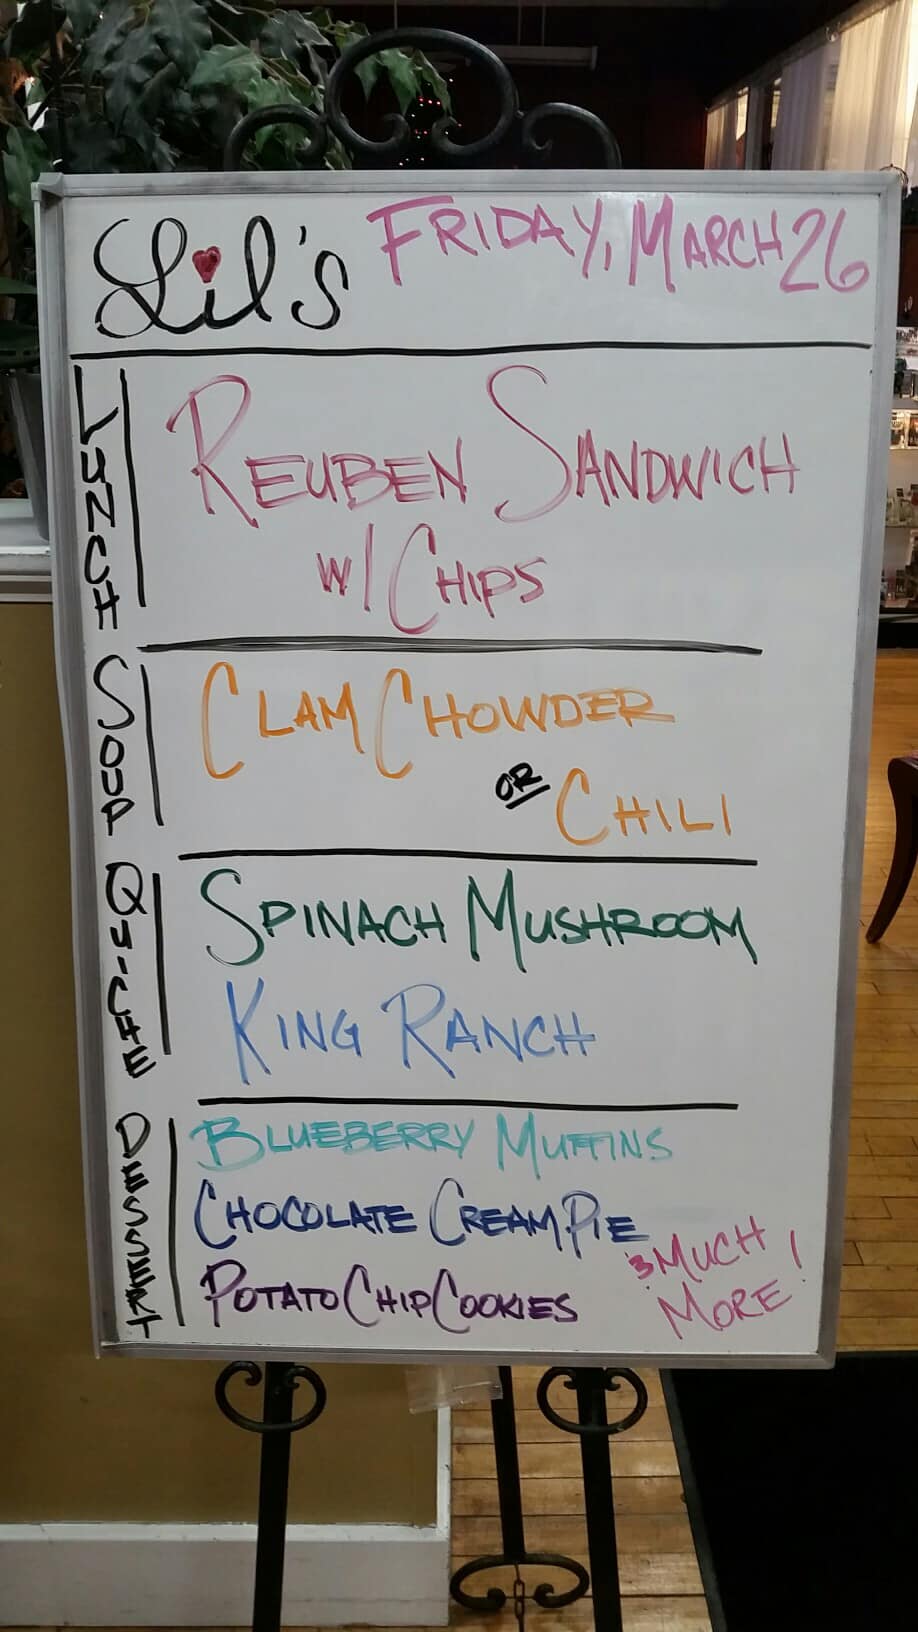 Lil's FRIDAY, MARCH 26
LUNCH
REUBEN SANDWICH
W/ CHIPS
SOUP
CLAM CHOWDER
OR CHILI
QUICHE
SPINACH MUSHROOM
KING RANCH
DESSERT
BLUEBERRY MUFFINS
CHOCOLATE CREAM PIE
POTATO CHIP COOKIES
& MUCH
MORE!